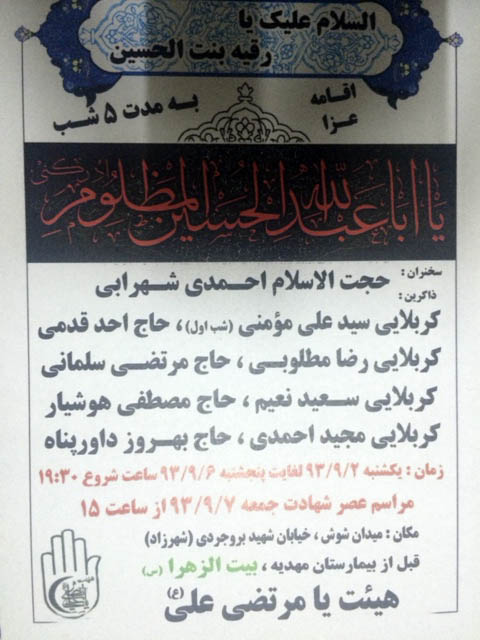 السلام علیک یا
رقیه بنت الحسین
اقامه
عزا
به مدت ۵ شب
یا اباعبدالله الحسین المظلوم ادرکنی
سخنران : حجت الاسلام احمدی شهرابی
ذاکرین :
کربلایی سید علی مؤمنی (شب اول) ، حاج احد قدمی
کربلایی رضا مطلوبی ، حاج مرتضی سلمانی
کربلایی سعید نعیم ، حاج مصطفی هوشیار
کربلایی مجید احمدی ، حاج بهروز داورپناه
زمان : یکشنبه ۹۳/۹/۲ لغایت پنجشنبه ۹۳/۹/۶ ساعت شروع ۱۹:۳۰
مراسم عصر شهادت جمعه ۹۳/۹/۷ از ساعت ۱۵
مکان : میدان شوش ، خیابان شهید بروجردی (شهرزاد)
قبل از بیمارستان مهدیه ، بیت الزهرا (س)
هیئت یا مرتضی علی (ع)